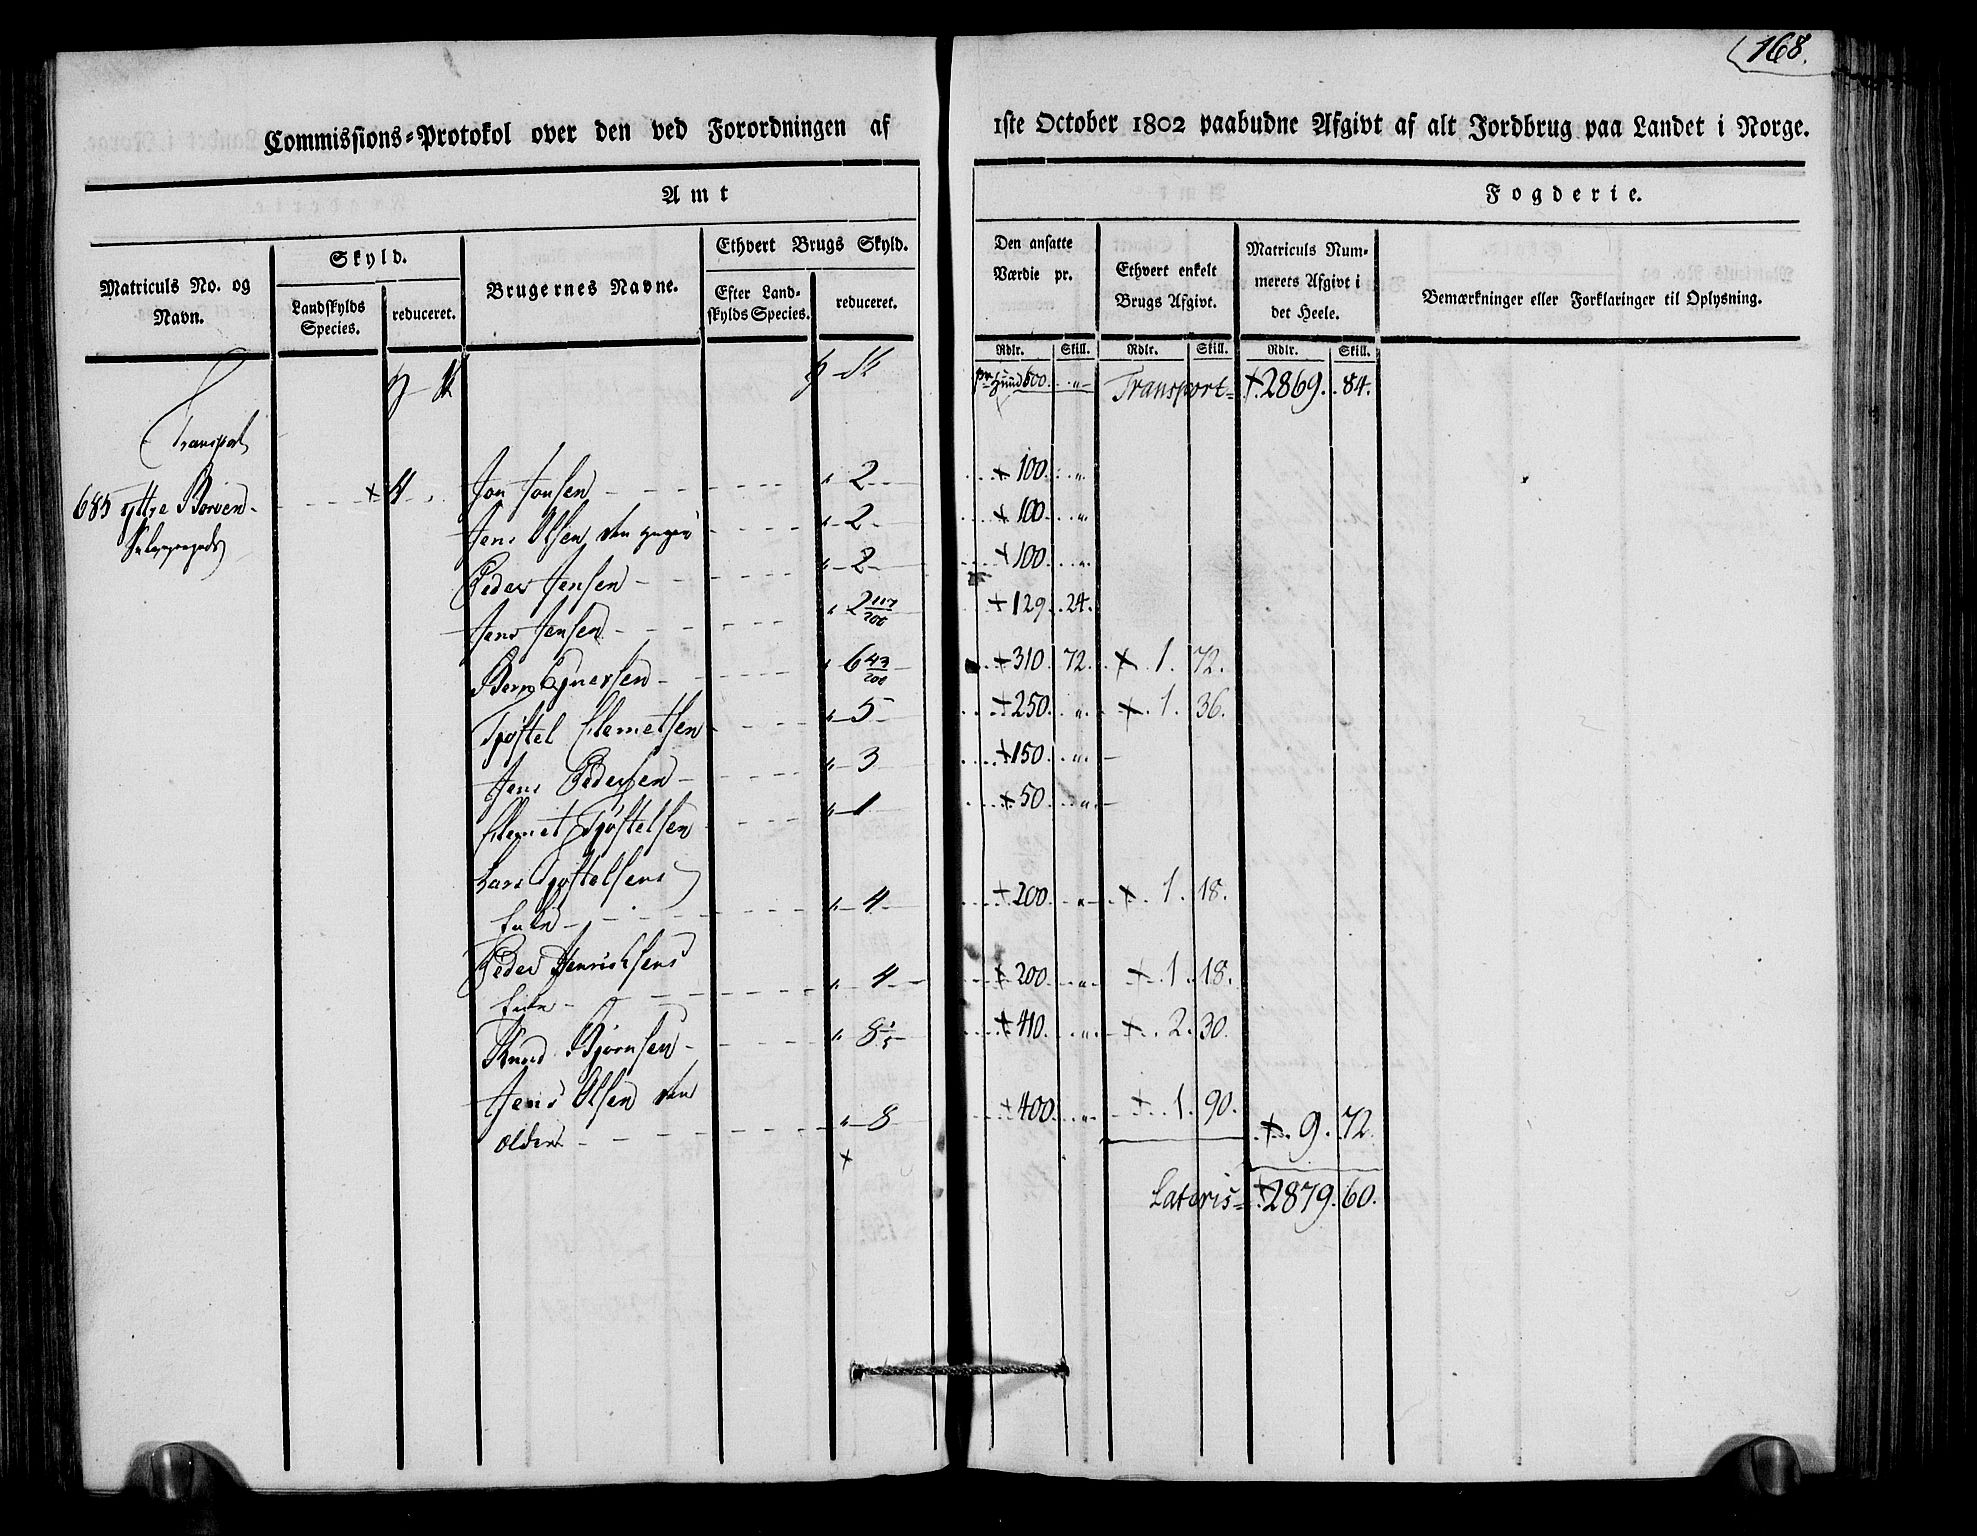 168.
Commissions-Protokol over den ved Forordningen af 1ste October 1802 paabudne Afgivt af alt Jordbrug paa Landet i Norge.
Amt Fogderie.
Matriculs No. og Navn.
Skyld.
Landskylds Species.
reduceret.
Brugernes Navne.
Ethvert Brugs Skyld.
Efter Landskylds Species.
reduceret.
Den ansatte Værdie pr.
Ethvert enkelt Brugs Afgivt.
Matriculs Nummerets Afgivt i det Heele.
Bemærkninger eller Forklaringer til Oplysning.
Rdlr. Skill. Rdlr. Skill. Rdlr. Skill.
Transport
600. Transport = 2869. 84.
685 yttre Børven
Jon Jonsen - 2 - 100.
Jens Olsen den yngre - 2 - 100.
Peder Jensen - 2 - 100.
Jens Jensen - 2 117/200 129. 24.
6 43/200 310. 72. 1. 72.
Tjøstel Clemetsen - 5 - 250. 1. 36.
Jens Pedersen - 3 150.
Clemet Tjøstelsen - 1 50.
Lars Tjøstelsens
Enke - 4 - 200. 1. 18.
Peder Henrichsens
Enke - 4 - 200. 1. 18.
Knud Bjørnsen - 8 1/5 410. 2. 30.
Jens Olsen den
older - 8 400. 1. 90. 9. 72.
Lateris = 2879. 60.